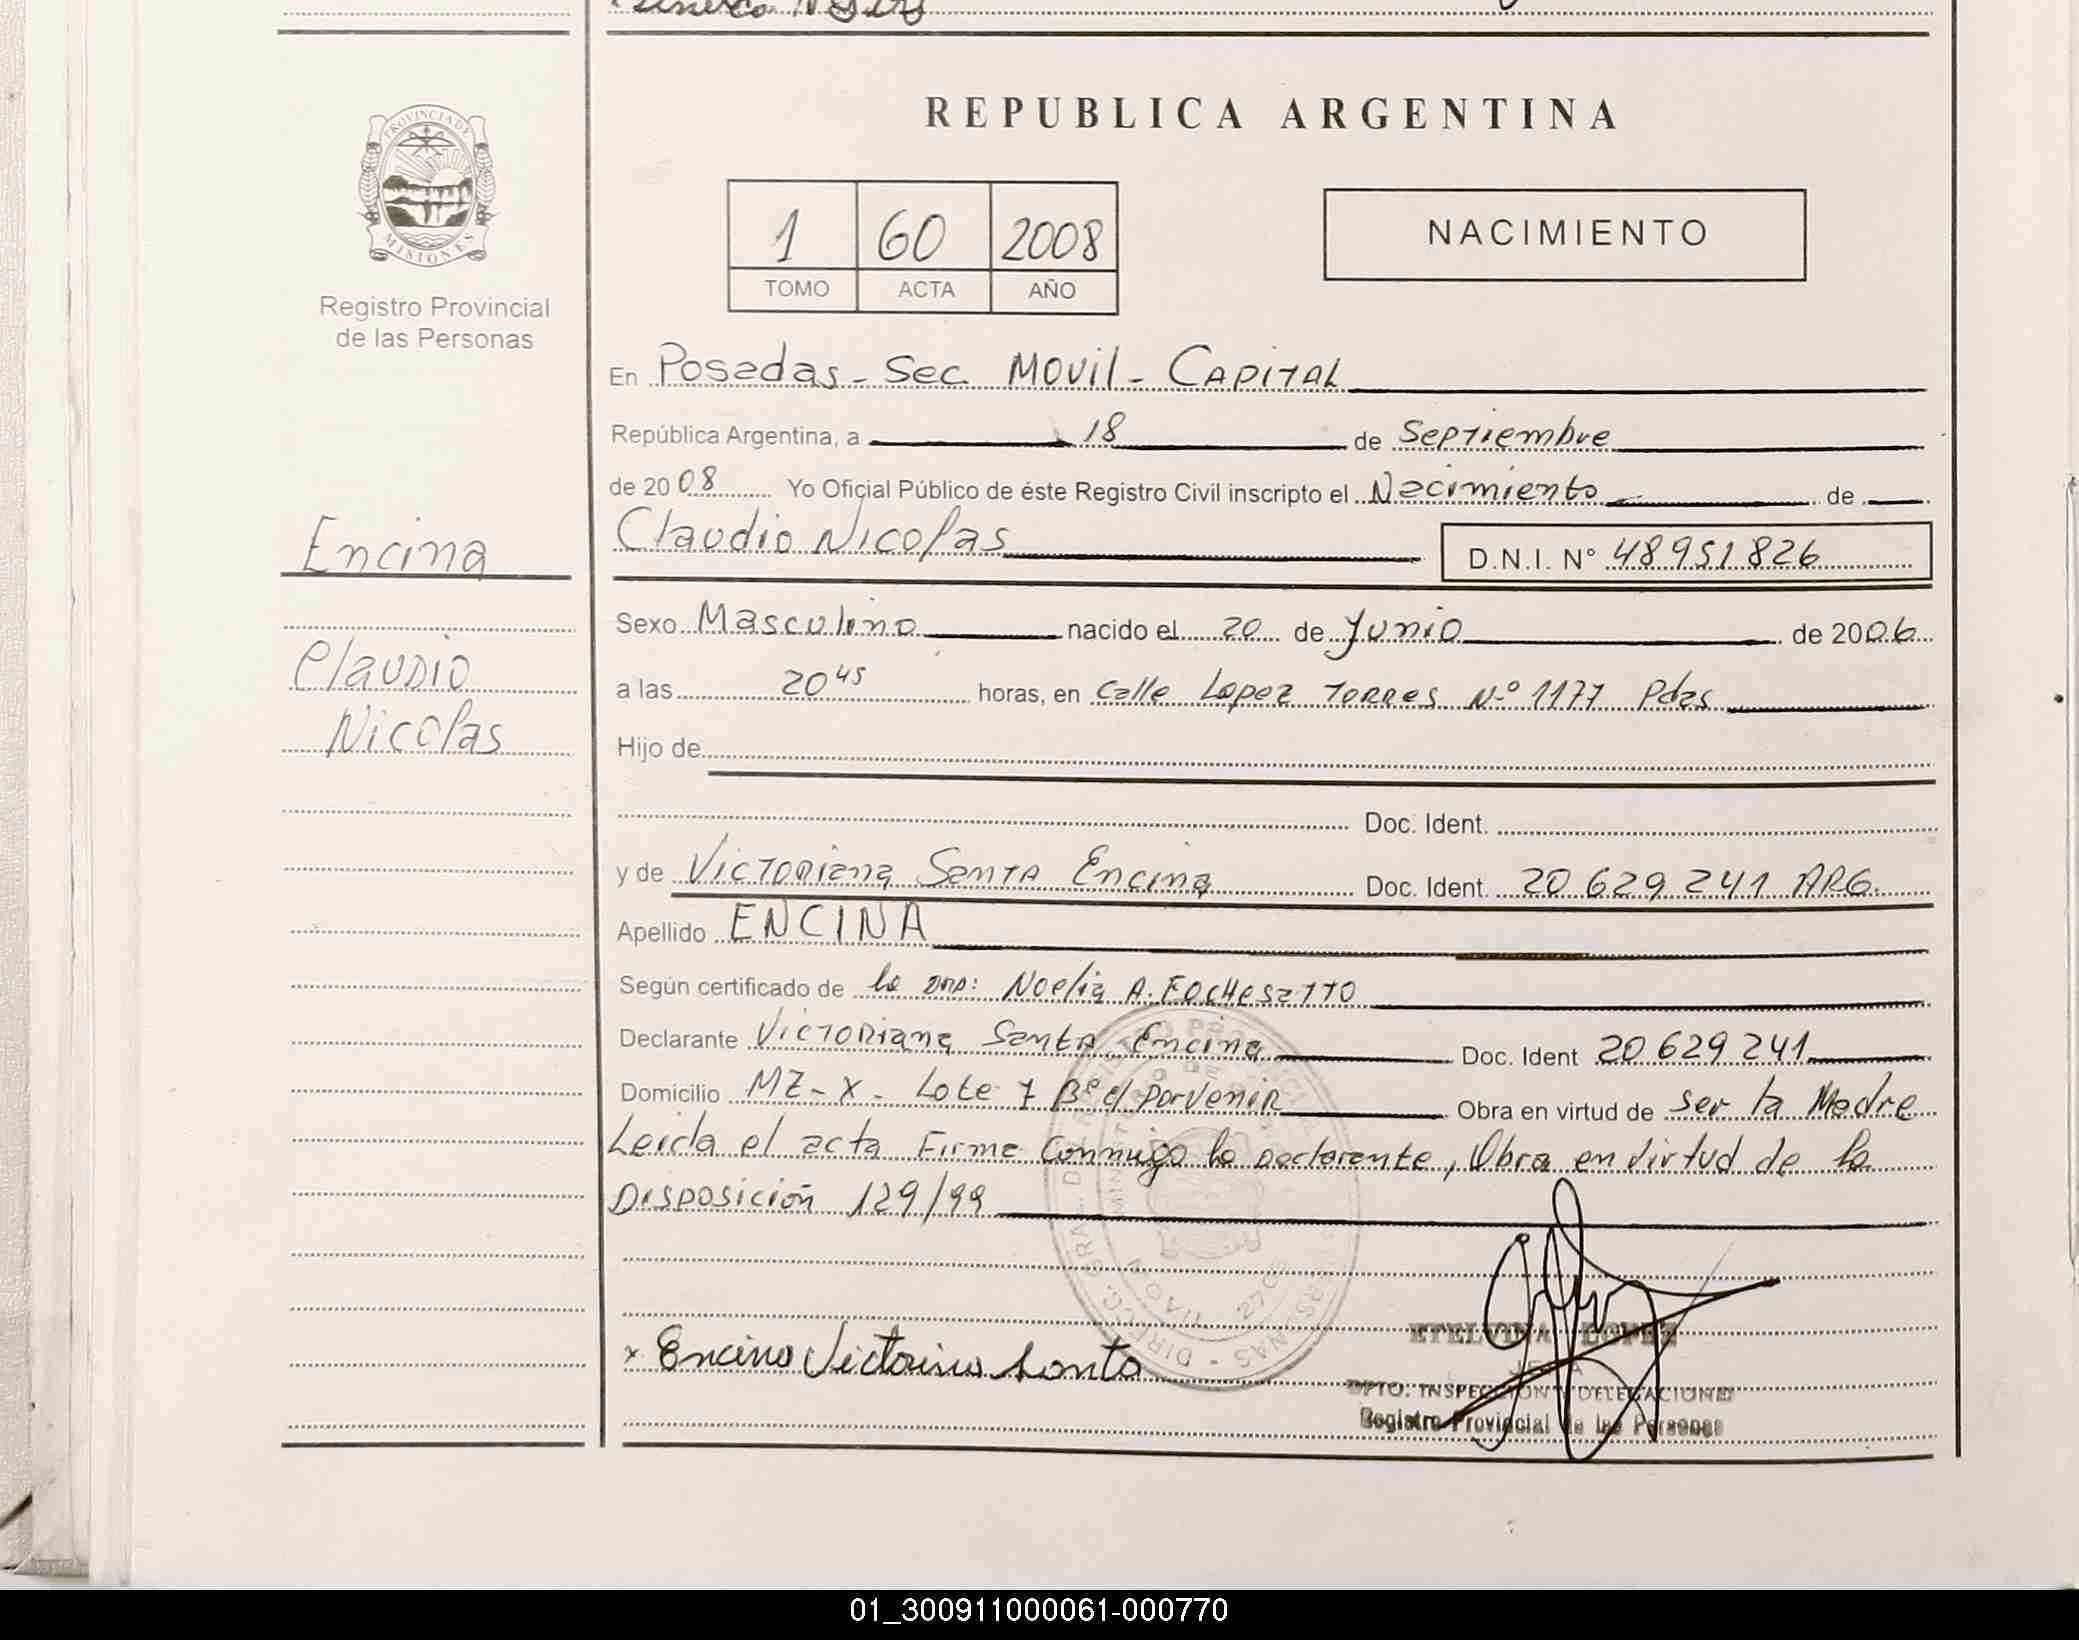 REPUBLICA ARGENTINA
PROVINCIA DE
MISIONES
Registro Provincial
de las Personas
1 60 2008
TOMO ACTA AÑO
NACIMIENTO
En Posadas - Sec. Movil - Capital
República Argentina, a 18 de Septiembre
de 2008 Yo Oficial Público de éste Registro Civil inscripto el Nacimiento de
Claudio Nicolas D.N.I. Nº 48951826
Encina
Claudio
Nicolas
Sexo Masculino nacido el 20 de Junio de 2006
a las 20 45 horas, en Calle Lopez Torres Nº 1177 Pdas
Hijo de
Doc. Ident.
y de Victoriana Santa Encina Doc. Ident. 20 629 241 ARG.
Apellido ENCINA
Según certificado de la Dra: Noelia A. Fochesatto
Declarante Victoriana Santa Encina Doc. Ident 20 629 241
Domicilio MZ-X- Lote 7 Bº el Porvenir Obra en virtud de ser la Madre
Leida el acta Firma Conmigo la Declarante, Obra en virtud de la
Disposición 129/99
x Encina Victoriana Santa
ETELVINA LOPEZ
JEFA
DPTO. INSPECCION Y DELEGACIONES
Registro Provincial de las Personas
01_300911000061-000770